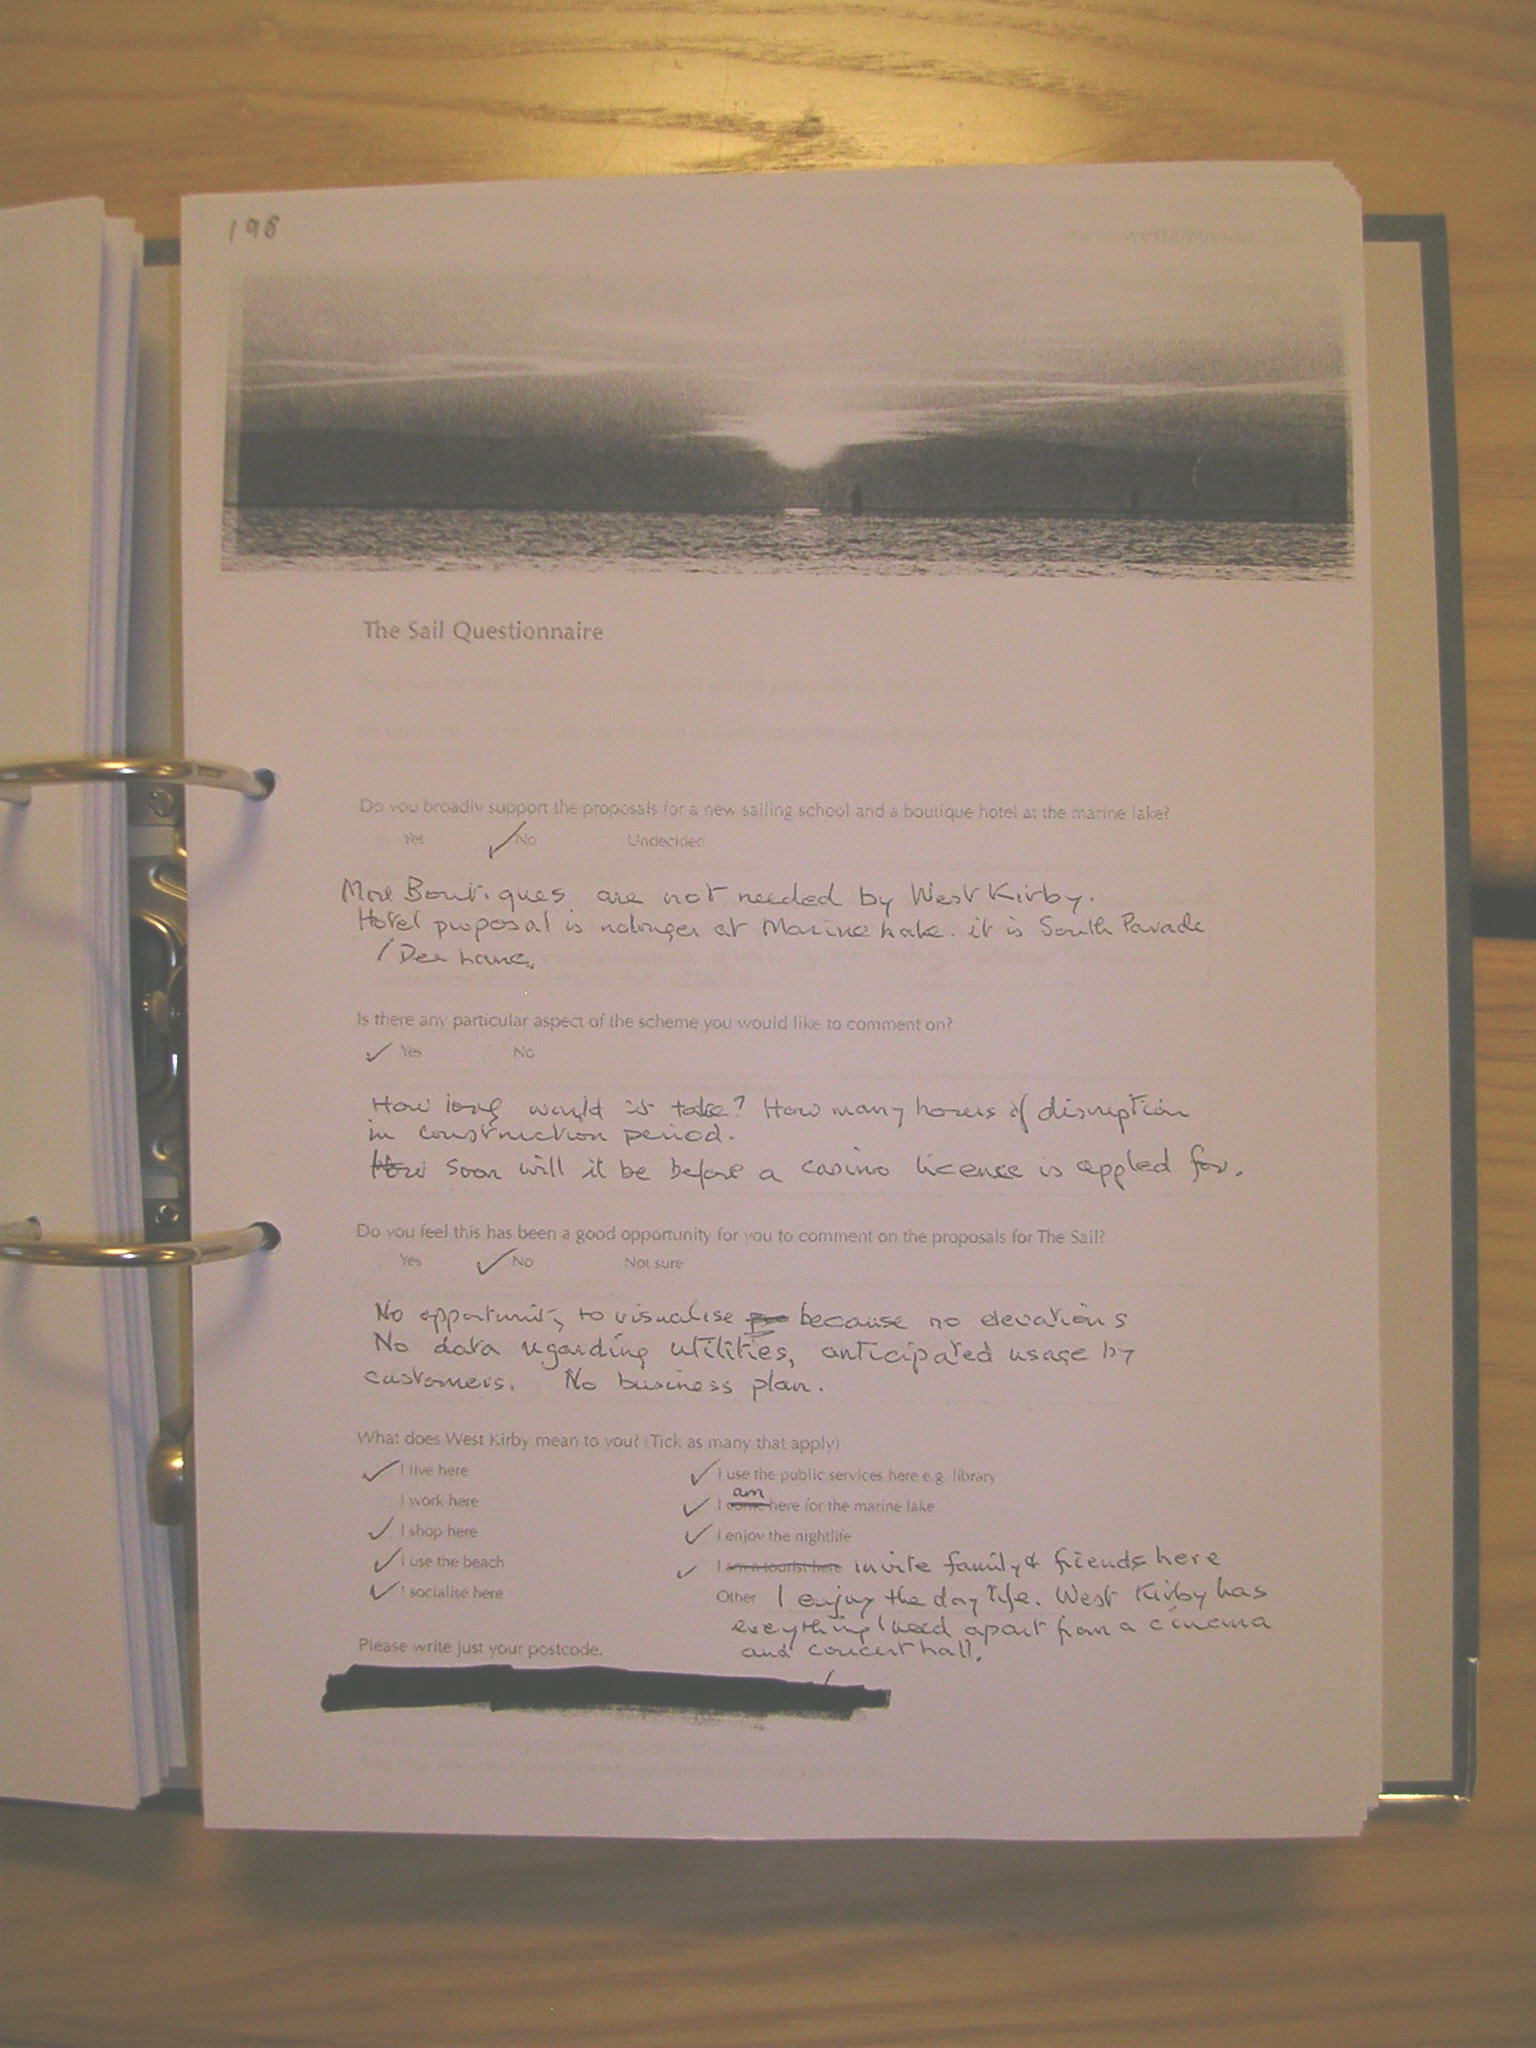 198
The Sail Questionnaire
Do you broadly support the proposals for a new sailing school and a boutique hotel at the marine lake?
Yes No Undecided
More Boutiques are not needed by West Kirby.
Hotel proposal is nolonger at Marine Lake. it is South Parade
/ Dee Lane.
Is there any particular aspect of the scheme you would like to comment on?
Yes No
How long would is take? How many hours of disruption
in construction period.
How soon will it be before a casino licence is appled for.
Do you feel this has been a good opportunity for you to comment on the proposals for The Sail?
Yes No Not sure
No opportunity to visualise because no elevations
No data regarding utilities, anticipated usage by
customers. No business plan.
What does West Kirby mean to you? (Tick as many that apply)
I live here
I work here
I shop here
I use the beach
I socialise here
I use the public services here e.g. library
am
I come here for the marine lake
I enjoy the nightlife
I am a tourist here invite family & friends here
Other I enjoy the day life. West Kirby has
everything I need apart from a cinema
and concert hall.
Please write just your postcode.